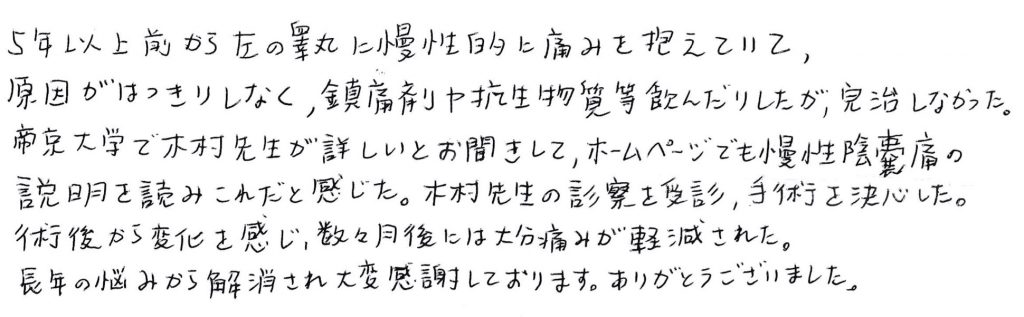 5年以上前から左の睾丸に慢性的に痛みを抱えていて,
原因がはっきりしなく,鎮痛剤や抗生物質等飲んだりしたが,完治しなかった。
帝京大学で木村先生が詳しいとお聞きして,ホームページでも慢性陰嚢痛の
説明を読みこれだと感じた。木村先生の診察を受診,手術を決心した。
術後から変化を感じ,数々月後には大分痛みが軽減された。
長年の悩みから解消され大変感謝しております。ありがとうございました。